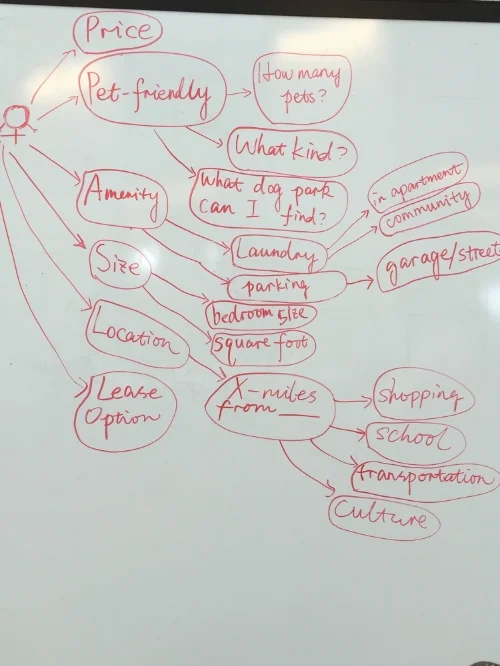 Price
Pet-friendly
How many
pets?
What kind?
What dog park
can I find?
Amenity
Laundry
in apartment
community
parking
garage/street
Size
bedroom size
square foot
Location
X-miles
from ___
shopping
school
transportation
culture
Lease
Option